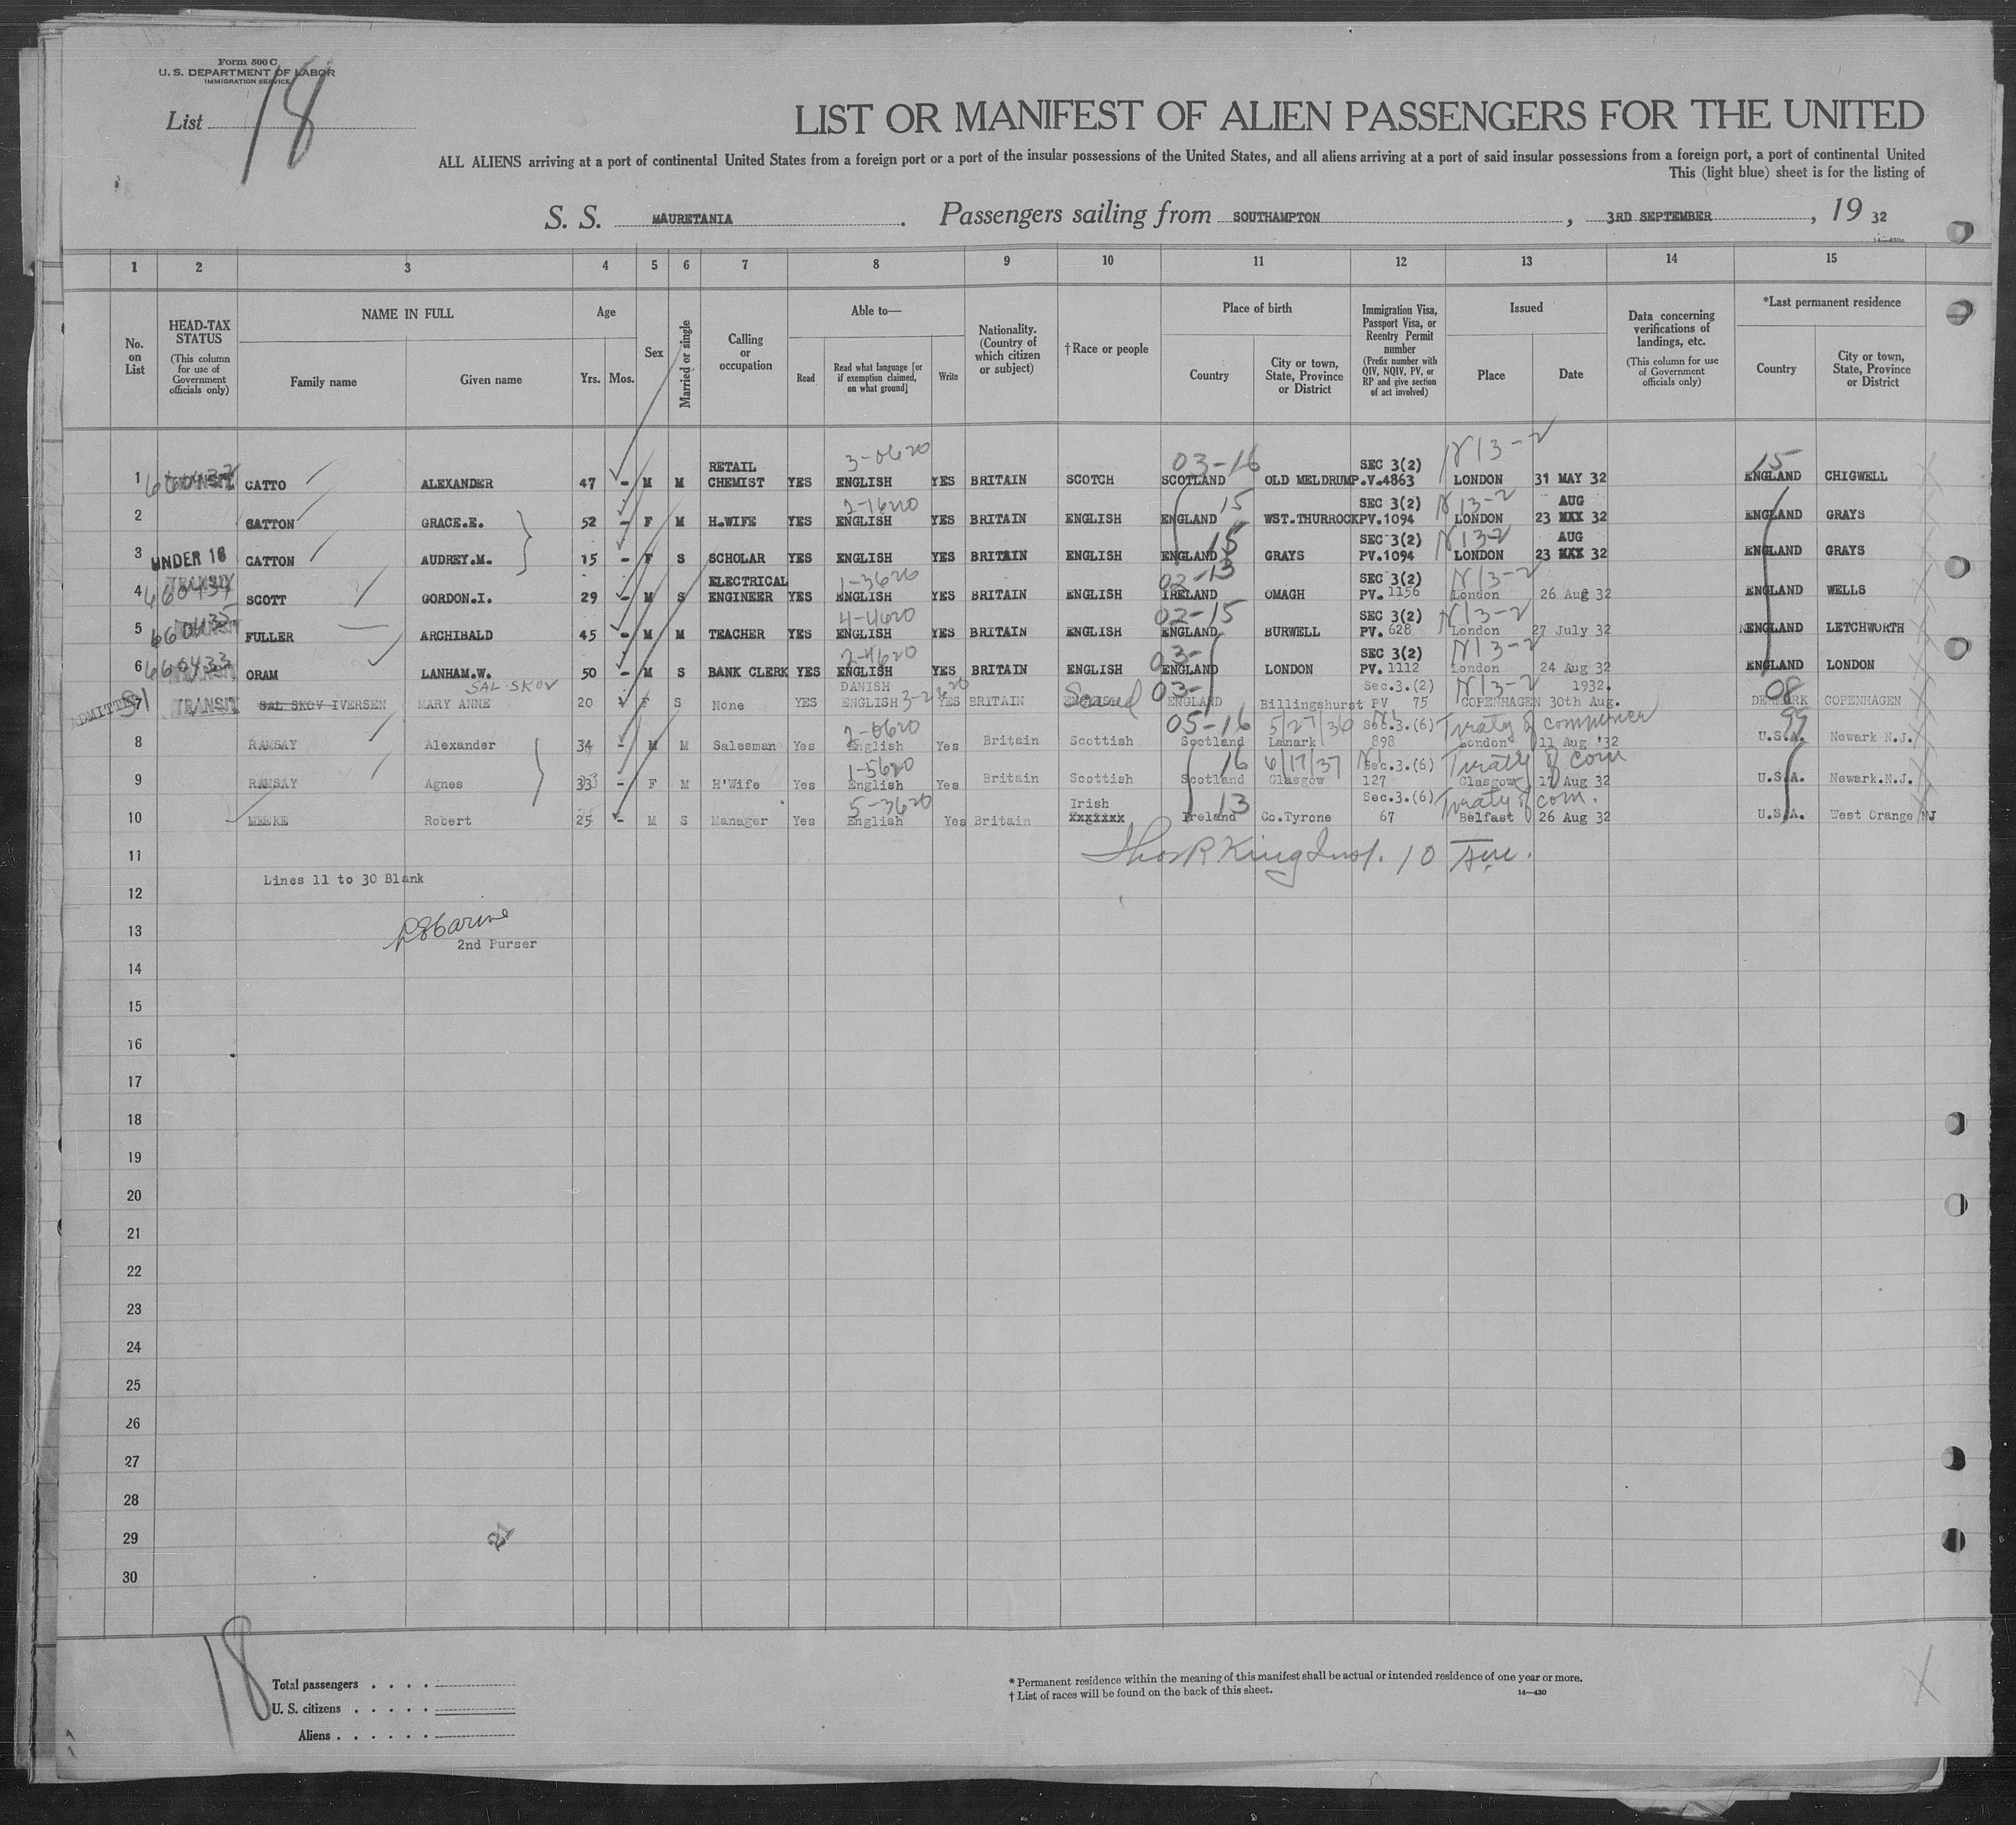 Form 500 C
U. S. DEPARTMENT OF LABOR
IMMIGRATION SERVICE
List 18
LIST OR MANIFEST OF ALIEN PASSENGERS FOR THE UNITED
ALL ALIENS arriving at a port of continental United States from a foreign port or a port of the insular possessions of the United States, and all aliens arriving at a port of said insular possessions from a foreign port, a port of continental United
This (light blue) sheet is for the listing of
S. S. MAURETANIA. Passengers sailing from SOUTHAMPTON, 3RD SEPTEMBER, 19 32
1 2 3 4 5 6 7 8 9 10 11 12 13 14 15
No. on List
HEAD-TAX STATUS (This column for use of Government officials only)
NAME IN FULL Family name Given name
Age Yrs. Mos.
Sex
Married or single
Calling or occupation
Able to— Read Read what language [or if exemption claimed, on what ground] Write
Nationality. (Country of which citizen or subject)
†Race or people
Place of birth Country City or town, State, Province or District
Immigration Visa, Passport Visa, or Reentry Permit number (Prefix number with QIV, NQIV, PV, or RP and give section of act involved)
Issued Place Date
Data concerning verifications of landings, etc. (This column for use of Government officials only)
*Last permanent residence Country City or town, State, Province or District
3-0620 03-16 N13-2 15
1 TRANSIT CATTO ALEXANDER 47 - M M RETAIL CHEMIST YES ENGLISH YES BRITAIN SCOTCH SCOTLAND OLD MELDRUM SEC 3(2) P.V.4863 LONDON 31 MAY 32 ENGLAND CHIGWELL
2-1620 15 N13-2
2 CATTON GRACE.E. 52 - F M H.WIFE YES ENGLISH YES BRITAIN ENGLISH ENGLAND WST.THURROCK SEC 3(2) PV.1094 LONDON 23 AUG 32 ENGLAND GRAYS
15 N13-2
3 UNDER 16 CATTON AUDREY.M. 15 - F S SCHOLAR YES ENGLISH YES BRITAIN ENGLISH ENGLAND GRAYS SEC 3(2) PV.1094 LONDON 23 AUG 32 ENGLAND GRAYS
1-3620 02-13 N13-2
4 TRANSIT SCOTT GORDON.I. 29 - M S ELECTRICAL ENGINEER YES ENGLISH YES BRITAIN ENGLISH IRELAND OMAGH SEC 3(2) PV. 1156 London 26 Aug 32 ENGLAND WELLS
4-4620 02-15 N13-2
5 TRANSIT FULLER ARCHIBALD 45 - M M TEACHER YES ENGLISH YES BRITAIN ENGLISH ENGLAND BURWELL SEC 3(2) PV. 628 London 27 July 32 ENGLAND LETCHWORTH
2-4620 03- N13-2
6 660433 TRANSIT ORAM LANHAM.W. 50 - M S BANK CLERK YES ENGLISH YES BRITAIN ENGLISH ENGLAND LONDON SEC 3(2) PV. 1112 London 24 Aug 32 ENGLAND LONDON
SAL-SKOV 03- N13-2 08
ADMITTED 7 TRANSIT SAL SKOV IVERSEN MARY ANNE 20 F S None YES DANISH ENGLISH YES BRITAIN ENGLAND Billingshurst Sec.3.(2) PV 75 COPENHAGEN 30th Aug. 1932. DENMARK COPENHAGEN
2-0620 05-16 5/27/36 Treaty of commerce 99
8 RAMSAY Alexander 34 - M M Salesman Yes English Yes Britain Scottish Scotland Lanark Sec.3.(6) 898 London 11 Aug '32 U.S.A. Newark N.J.
1-5620 16 6/17/37 Treaty of Com
9 RAMSAY Agnes 33 - F M H'Wife Yes English Yes Britain Scottish Scotland Glasgow Sec.3.(6) 127 Glasgow 17 Aug 32 U.S.A. Newark.N.J.
5-3620 13 Treaty of Com.
10 MEEKE Robert 25 - M S Manager Yes English Yes Britain Irish xxxxxxx Ireland Co.Tyrone Sec.3.(6) 67 Belfast 26 Aug 32 U.S.A. West Orange NJ
11 Thos R King Insp. 10
Lines 11 to 30 Blank
12
13
2nd Purser
14
15
16
17
18
19
20
21
22
23
24
25
26
27
28
29
21
30
18
Total passengers . . . .
U. S. citizens . . . . .
Aliens . . . . . .
* Permanent residence within the meaning of this manifest shall be actual or intended residence of one year or more.
† List of races will be found on the back of this sheet.
14—430